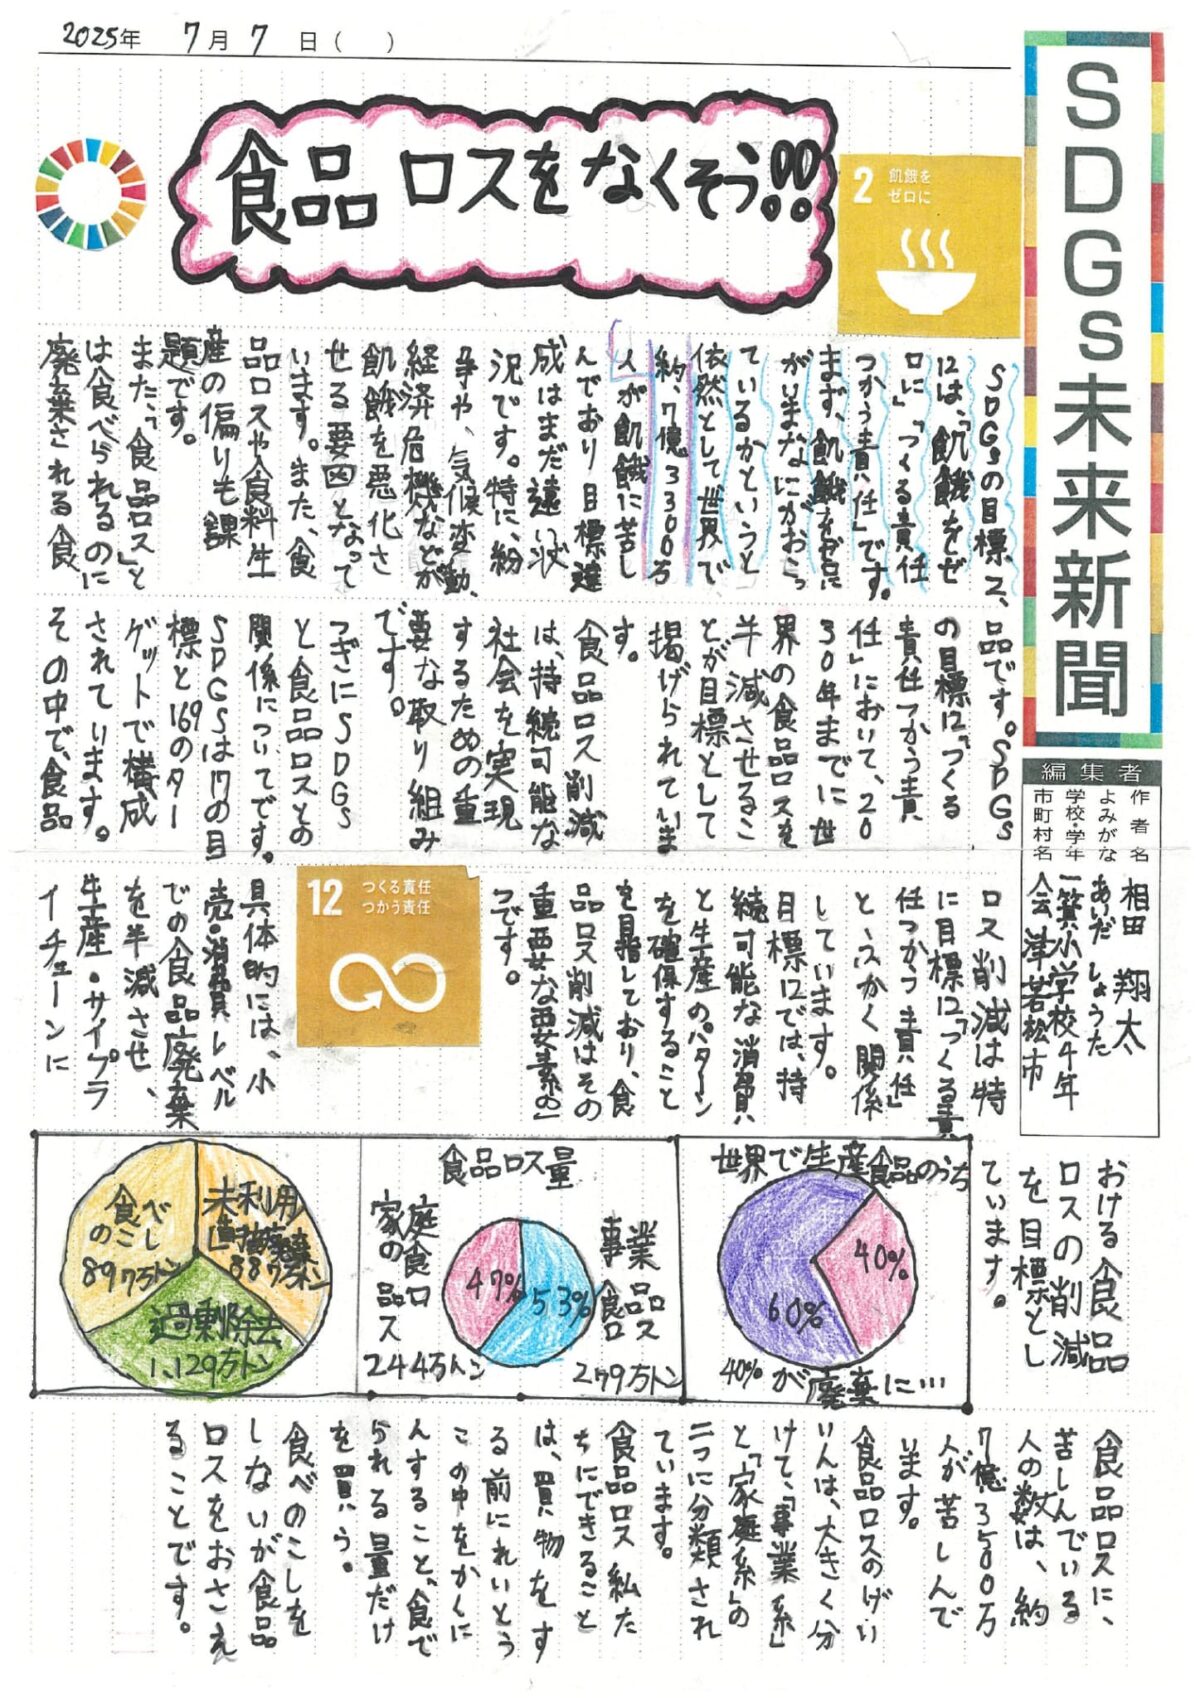 2025年 7月7日( )
SDGs未来新聞
食品ロスをなくそう!!
2 飢餓を
ゼロに
編集者
作者名 相田 翔太
よみがな あいだ しょうた
学校・学年 一箕小学校4年
市町村名 会津若松市
SDGsの目標2、
12は、「飢餓をゼ
ロに」「つくる責任
つかう責任」です。
まず、飢餓をゼロに
がいまなにがおこっ
ているかというと
依然として世界で
約、7億3300万
人が飢餓に苦し
んでおり目標達
成はまだ遠い状
況です。特に、紛
争や、気候変動、
経済危機などが
飢餓を悪化さ
せる要因となって
います。また、食
品ロスや食料生
産の偏りも課
題です。
また、「食品ロス」と
は食べられるのに
廃棄される食
品です。SDGs
の目標12「つくる
責任つかう責
任」において、20
30年までに世
界の食品ロスを
半減させるこ
とが目標として
掲げられていま
す。
食品ロス削減
は、持続可能な
社会を実現
するための重
要な取り組み
です。
つぎにSDGs
と食品ロスとの
関係についてです。
SDGSは17の目
標と169のター
ゲットで構成
されています。
その中で、食品
ロス削減は特
に目標12「つくる責
任つかう責任」
とふかく関係
しています。
目標12では、持
続可能な消費
と生産のパターン
を確保すること
を目指しており、食
品ロス削減はその
重要な要素の一
つです。
12 つくる責任
つかう責任
具体的には、小
売・消費レベル
での食品廃棄
を半減させ、
生産・サイプラ
イチェーンに
おける食品
ロスの削減
を目標とし
ています。
世界で生産食品のうち
60%
40%
40%が廃棄に…
食品ロス量
家庭食ロ
の品ス
244万トン
47%
53%
事業
食品ロス
279万トン
食べ
のこし
897万トン
未利用
887万トン
過剰除去
1,129万トン
食品ロスに、
苦しんでいる
人の数は、約
7億3500万
人が苦しんで
います。
食品ロスのげい
いんは、大きく分
けて、「事業系」
と「家庭系」の
二つに分類され
ています。
食品ロス私た
ちにできること
は、買い物をす
る前にれいとう
この中をかくに
んすること、食べ
られる量だけ
を買う。
食べのこしを
しないが食品
ロスをおさえ
ることです。